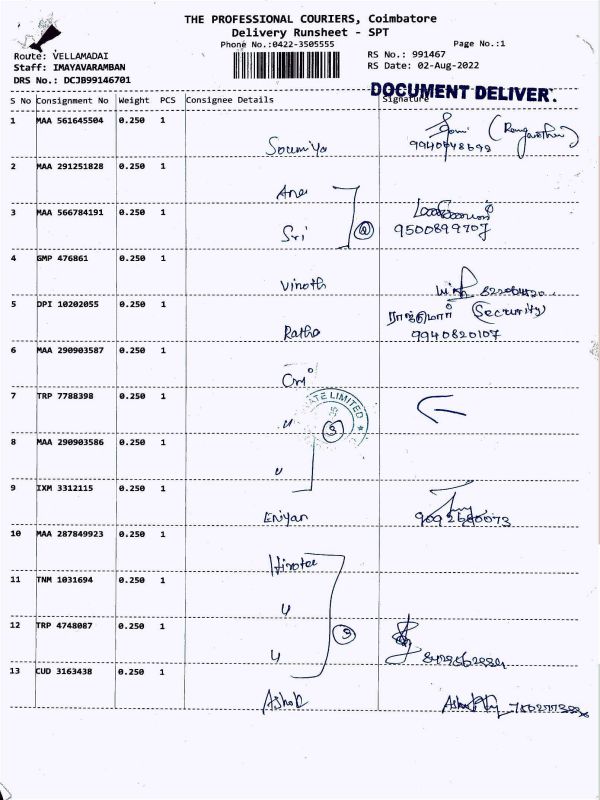 THE PROFESSIONAL COURIERS, Coimbatore
Delivery Runsheet - SPT
Phone No.:0422-3505555
Page No.:1
Route: VELLAMADAI
Staff: IMAYAVARAMBAN
DRS No.: DCJB99146701
RS No.: 991467
RS Date: 02-Aug-2022
DOCUMENT DELIVER.
S No Consignment No Weight PCS Consignee Details Signature
1 MAA 561645504 0.250 1
Soumiya
2 MAA 291251828 0.250 1
3 MAA 566784191 0.250 1
Sri 9500899707
4 GMP 476861 0.250 1
Vinoth
5 DPI 10202055 0.250 1
ராஜ்குமார் (Security)
Ratha 9940820107
6 MAA 290903587 0.250 1
7 TRP 7788398 0.250 1
ATE LIMITED
3
8 MAA 290903586 0.250 1
9 IXM 3312115 0.250 1
Eniyan
10 MAA 287849923 0.250 1
11 TNM 1031694 0.250 1
12 TRP 4748087 0.250 1
3
13 CUD 3163438 0.250 1
Ashok